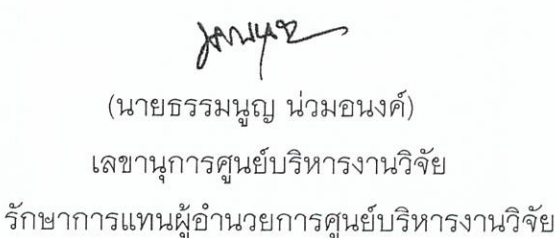 (นายธรรมนูญ น่วมอนงค์)
เลขานุการศูนย์บริหารงานวิจัย
รักษาการแทนผู้อำนวยการศูนย์บริหารงานวิจัย